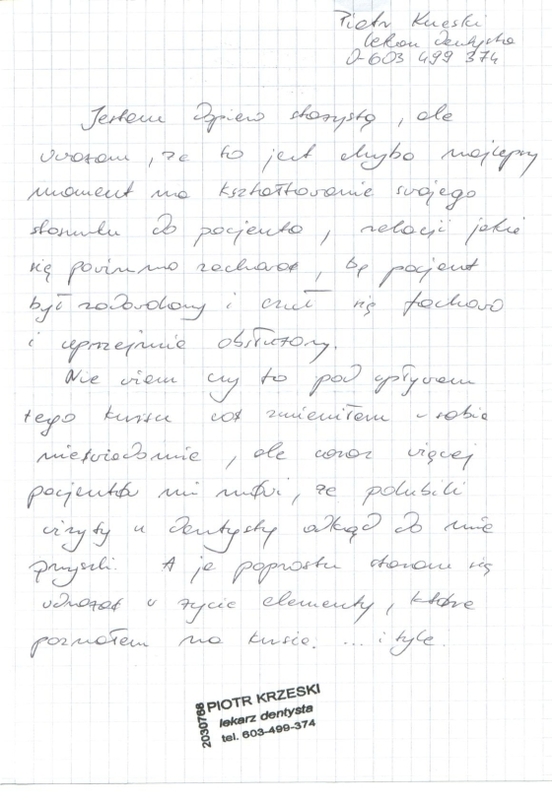 Piotr Krzeski
lekarz dentysta
0-603 499 374
Jestem dopiero stażystą, ale
uważam, że to jest chyba najlepszy
moment na kształtowanie swojego
stosunku do pacjenta, relacji jakie
się powinno zachować, by pacjent
był zadowolony i czuł się fachowo
i uprzejmie obsłużony.
Nie wiem czy to pod wpływem
tego kursu coś zmieniłem w sobie
nieświadomie, ale coraz więcej
pacjentów mi mówi, że polubili
wizyty u dentysty odkąd do mnie
przyszli. A ja poprostu staram się
wdrażać w życie elementy, które
poznałem na kursie. ... i tyle.
2030768
PIOTR KRZESKI
lekarz dentysta
tel. 603-499-374